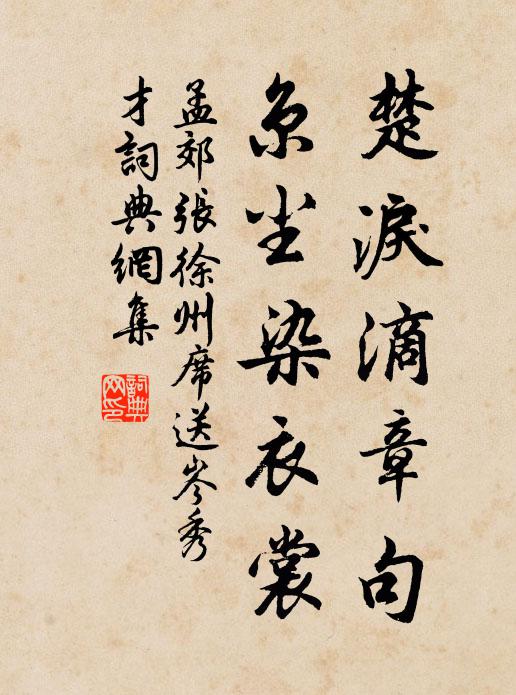 楚淚滴章句
京塵染衣裳
孟郊張徐州席送岑秀
才詞典網集
詞典
网印